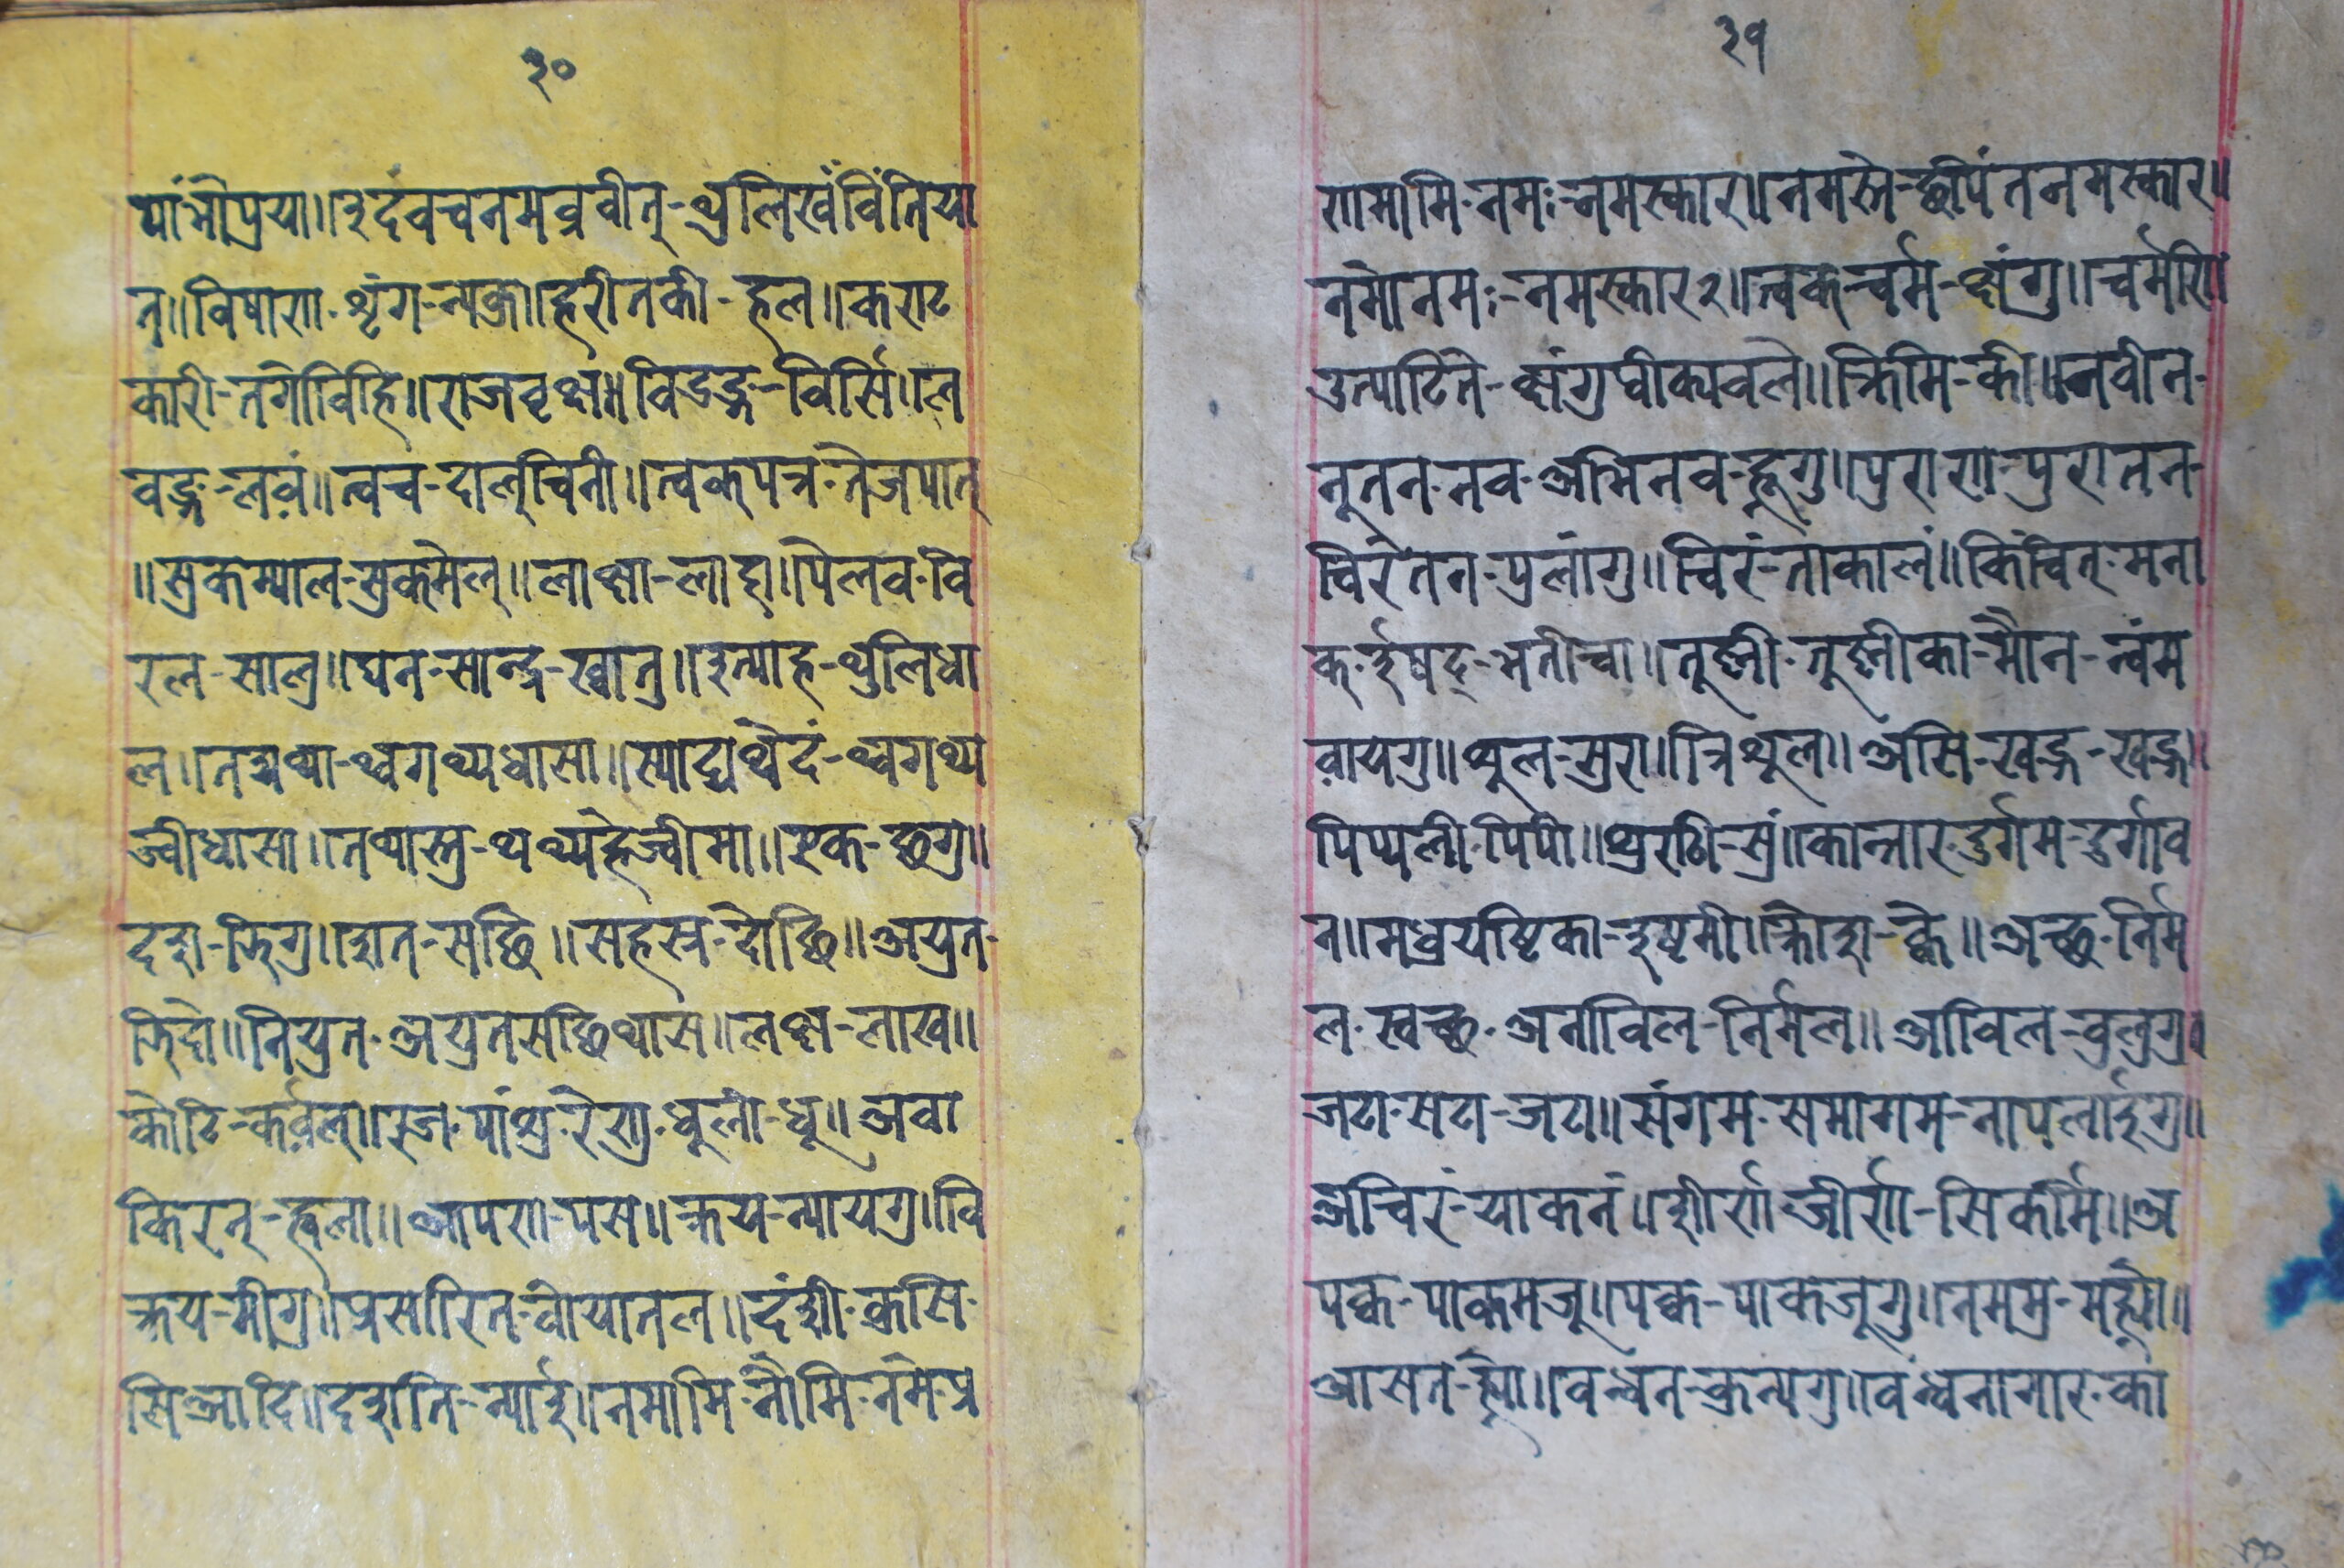 ३०
पांभीप्रया॥इदंवचनमव्रवीत्-थुलिखंविंतिया
त॥विषाण-शृंग-न्यकू॥हरीतकी-हल॥कराट
कारी-तगोविहि॥राजवृक्ष॥विडङ्ग-विर्सि॥ल
वङ्ग-लवं॥त्वच-दालुचिनी॥त्वक्पत्र-तेजपात्
॥सुकम्याल-सुक्मेल्॥लाक्षा-लाहा॥पेलव-वि
रल-सालु॥घन-सान्द्र-ख्वातु॥इत्याह-थुलिधा
ल॥तद्यथा-थ्वगथ्यधासा॥स्याद्यथेदं-थ्वगथ्य
ज्वीधासा॥तथास्तु-थथ्यंहेज्वीमा॥एक-छगु॥
दश-झिगु॥शत-सछि॥सहस्र-दोछि॥अयुत-
झिदो॥नियुत-अयुतसछिथास॥लक्ष-लाख॥
कोटि-कर्वल्॥रज-पांशु-रेणु-धुली-धू॥अवा
किरत्-ह्वला॥आपण-पस॥क्रय-न्यायगु॥वि
क्रय-मीगु॥प्रसारित-वोयातल॥दंशी-क्रसि-
सिआदि॥दशति-न्यार्इ॥नमामि-नौमि-नमे-प्र
३१
णमामि-नमः-नमस्कार॥नमस्ते-छीपंतनमस्कार॥
नमोनमः-नमस्कार२॥त्वक्-चर्म-क्ष्यंगु॥चर्मणि॥
उत्पाटिते-क्ष्यंगुघीकावले॥क्रिमि-की॥नवीन-
नूतन-नव-अभिनव-ह्लूगु॥पुराण-पुरातन-
चिरंतन-पुलांगु॥चिरं-ताकालं॥किंचित्-मना
क्-ईषद्-भतीचा॥तूष्णी-तूष्णीका-मौन-न्वंम
वायगु॥शूल-सुरा॥त्रिशूल॥असि-खड्ग-खड्ग॥
पिप्पली-पिपी॥शुरठि-सुं॥कान्तार-दुर्गम-दुर्गाव
न॥मधुयष्टिका-इष्टमी॥क्रोश-क्वे॥अच्छ-निर्म
ल-स्वच्छ-अनाविल-निर्मल॥आविल-वुलुगु॥
जटा-सटा-जटा॥संगम-समागम-नापलार्इगु॥
अचिरं-याकनं॥शीर्ण-जीर्ण-सिकर्मि॥अ
पक्व-पाकमजू॥पक्व-पाकजूगु॥नममु-मह्यो॥
आसत-ह्या॥वन्धन-क्रन्यगु॥वंधनागार-का